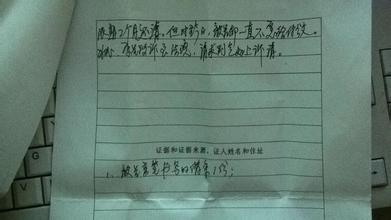 限期2个月还清。但时至今日,被告却一直不予给付欠
故原告诉至法院,请求判令如上诉请。
证据和证据来源,证人姓名和住址
1、被告亲笔书写的借条1份;